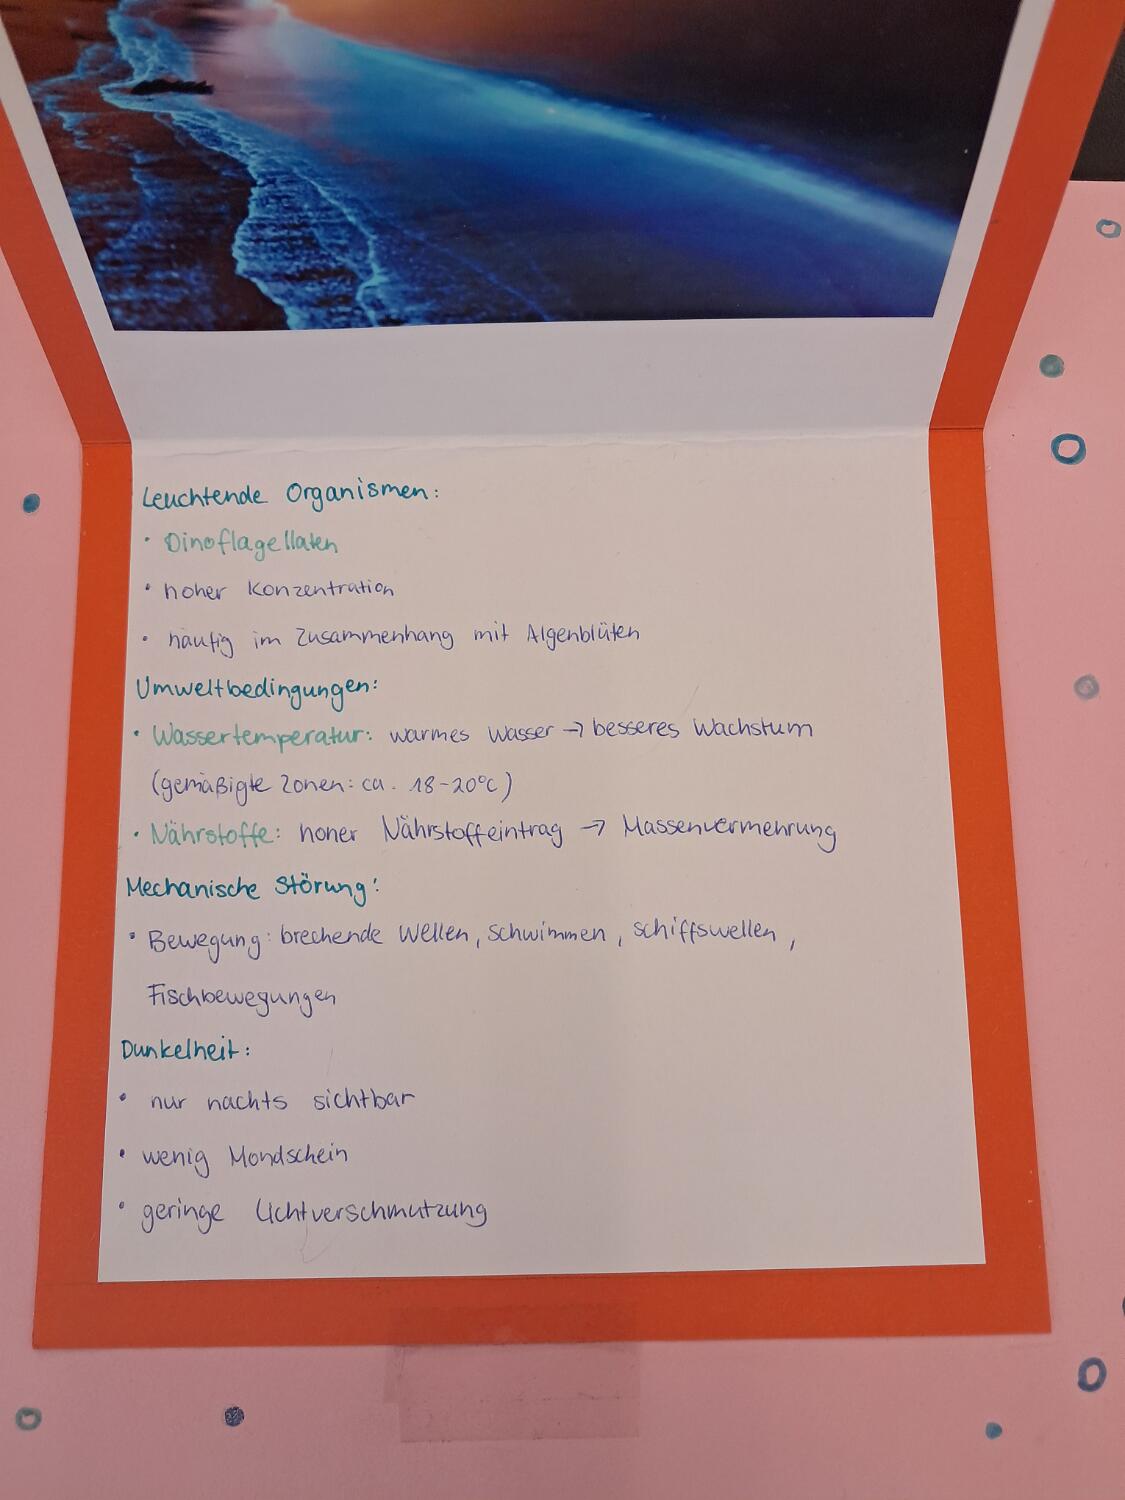 Leuchtende Organismen:
• Dinoflagellaten
• hoher Konzentration
• häufig im Zusammenhang mit Algenblüten
Umweltbedingungen:
• Wassertemperatur: warmes Wasser → besseres Wachstum
(gemäßigte Zonen: ca. 18-20°C)
• Nährstoffe: hoher Nährstoffeintrag → Massenvermehrung
Mechanische Störung:
• Bewegung: brechende Wellen, schwimmen, schiffswellen,
Fischbewegungen
Dunkelheit:
• nur nachts sichtbar
• wenig Mondschein
• geringe Lichtverschmutzung